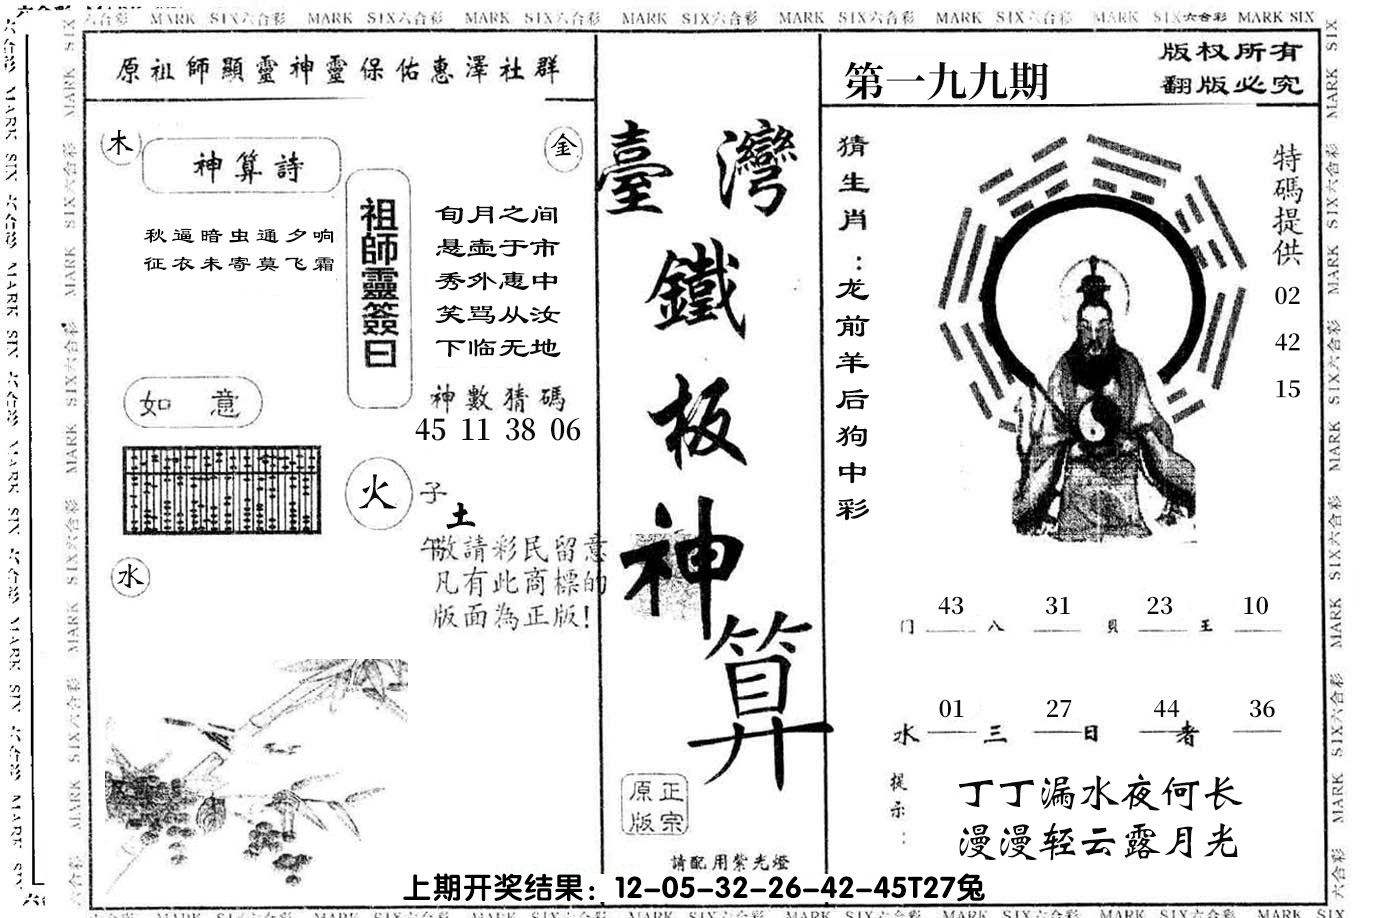 MARK SIX六合彩 MARK SIX六合彩 MARK SIX六合彩 MARK SIX六合彩 MARK SIX六合彩 MARK SIX六合彩 MARK SIX六合彩 MARK SIX
原祖師顯靈神靈保佑惠澤社群
木
神算詩
金
秋逼暗虫通夕响
征衣未寄莫飞霜
祖師靈簽曰
旬月之间
悬壶于市
秀外惠中
笑骂从汝
下临无地
神數猜碼
45 11 38 06
如意
火
子
土
午
水
敬請彩民留意
凡有此商標的
版面為正版!
臺灣
鐵
板
神
算
正宗
原版
請配用紫光燈
第一九九期
版权所有
翻版必究
猜生肖：龙前羊后狗中彩
特碼提供
02
42
15
43 31 23 10
门 八 貝 王
01 27 44 36
水 三 日 者
提示：
丁丁漏水夜何长
漫漫轻云露月光
上期开奖结果：12-05-32-26-42-45T27兔